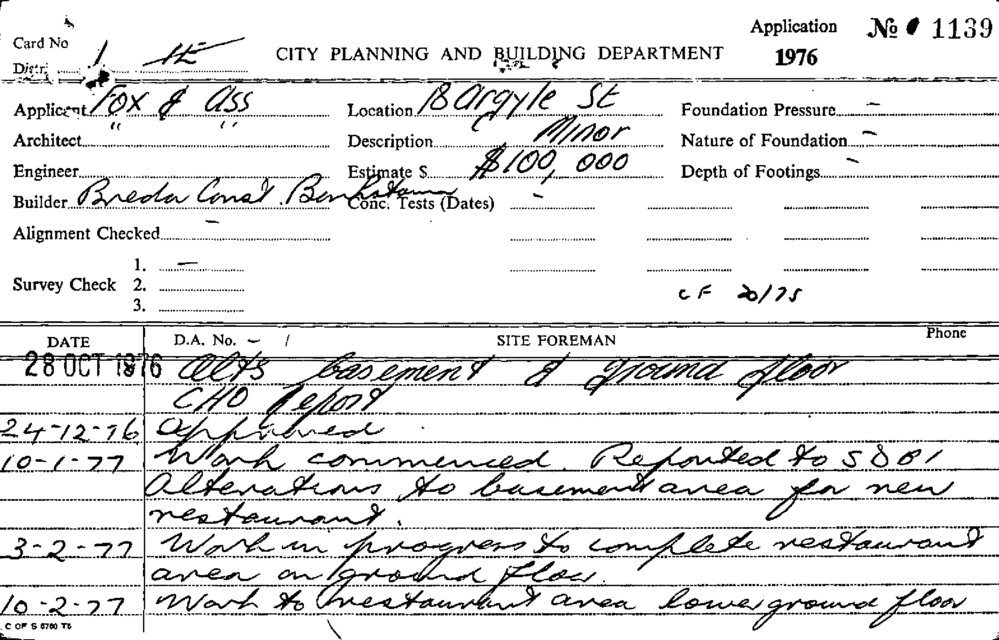 Application No 1139
Card No 1
CITY PLANNING AND BUILDING DEPARTMENT 1976
Distr.
Applicant Fox & Ass Location 18 Argyle St Foundation Pressure –
Architect " " Description Minor Nature of Foundation –
Engineer Estimate $ $100,000 Depth of Footings –
Builder Breda Const Bankstown Conc. Tests (Dates) –
Alignment Checked –
1. –
Survey Check 2.
3.
CF 20/75
DATE D.A. No. – / SITE FOREMAN Phone
28 OCT 1976 Alts basement & ground floor
CHO report
24-12-76 Approved
10-1-77 Work commenced. Reported to SDBI
Alterations to basement area for new
restaurant.
3-2-77 Work in progress to complete restaurant
area on ground floor.
10-2-77 Work to restaurant area lower ground floor
C OF S 6760 T5